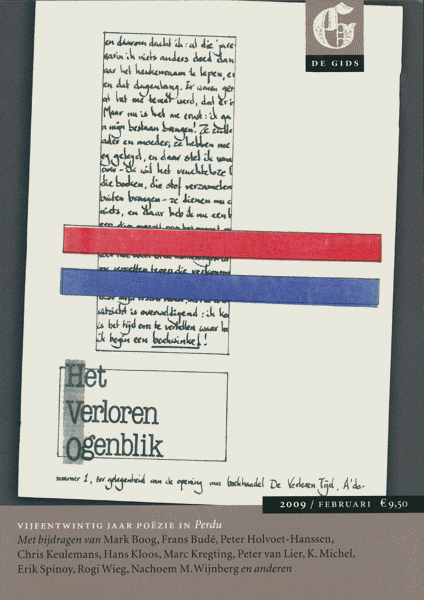 G
DE GIDS
en daarom dacht ik: al die jare
waarin ik niets anders deed dan
naar het keukenraam te lopen, en
en dat dagenlang. Er waren
Maar nu is het me ernst: ik ga
n mijn bestaan brengen! Ze zulle
ader en moeder; ze hebben me
gelegd, en daar stel ik
ik wil het vruchteloze
die boeken, die stof verzamelen
buiten brengen - ze dienen nu
niets, en daar heb ik nu een
me verzetten tegen die
uitzicht is overweldigend: ik
is het tijd om te vertellen waar
ik begin een boekwinkel!
Het
Verloren
Ogenblik
nummer 1, ter gelegenheid van de opening van boekhandel De Verloren Tijd, A'do-
2009 / FEBRUARI €9,50
VIJFENTWINTIG JAAR POËZIE IN Perdu
Met bijdragen van Mark Boog, Frans Budé, Peter Holvoet-Hanssen,
Chris Keulemans, Hans Kloos, Marc Kregting, Peter van Lier, K. Michel,
Erik Spinoy, Rogi Wieg, Nachoem M. Wijnberg en anderen